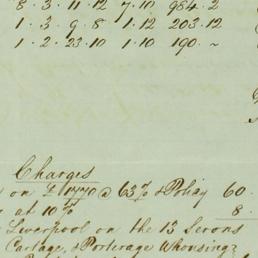 8 . 3 . 11 . 12 7 . 10 984 . 2
1 . 3 . 9 . 8 1 . 12 203 . 12
1 . 2 . 23 . 10 1 . 10 190 . ~
Charges
on £1770 @ 63/ & Poliay 60 .
at 10 % 8 .
Liverpool on the 13 Serons
Cartage, & Porterage Whousing